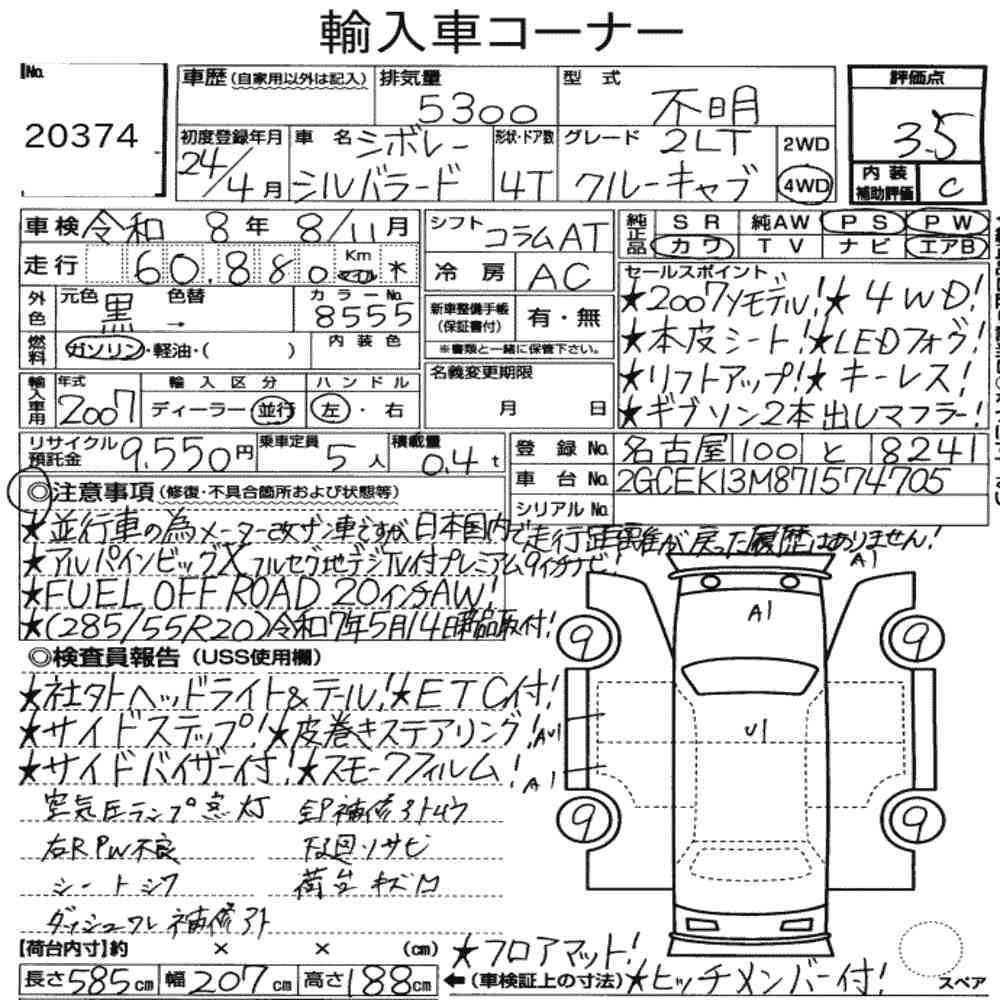 輸入車コーナー
No. 20374
車歴(自家用以外は記入)
排気量 5300
型式 不明
評価点 3.5
初度登録年月 24/4月
車名 シボレー シルバラード
形状・ドア数 4T
グレード 2LT クルーキャブ
2WD
4WD
内装補助評価 C
車検 令和 8年 8/11月
シフト コラムAT
純正品 SR 純AW PS PW
カワ TV ナビ エアB
走行 60,880 Km マイル ※
冷房 AC
セールスポイント
★2007Yモデル!★4WD!
★本皮シート!★LEDフォグ!
★リフトアップ!★キーレス!
★ギブソン2本出しマフラー!
外色 元色 黒 色替 → カラーNo. 8555
燃料 ガソリン・軽油・( ) 内装色
新車整備手帳(保証書付) 有・無
※書類と一緒に保管下さい。
輸入車用 年式 2007 輸入区分 ディーラー 並行 ハンドル 左・右
名義変更期限 月 日
リサイクル預託金 9,550円 乗車定員 5人 積載量 0.4t
登録No. 名古屋 100 と 8241
車台No. 2GCEK13M871574705
シリアルNo.
◎注意事項(修復・不具合箇所および状態等)
★並行車の為メーター改ザン車ですが日本国内で走行距離が戻った履歴はありません!
★アルパインビッグXフルセグ地デジTV付プレミアム9インチナビ!
★FUEL OFF ROAD 20インチAW!
★(285/55R20)令和7年5月14日新品取付!
◎検査員報告(USS使用欄)
★社外ヘッドライト&テール!★ETC付!
★サイドステップ!★皮巻きステアリング!
★サイドバイザー付!★スモークフィルム!
空気圧ランプ点灯
右RPW不良 下廻りサビ
シートシワ 荷台キズ凹
ダッシュワレ補修跡
A1
A1
U1
AU1
A1
9
9
9
9
【荷台内寸】約 × × (cm)
長さ585cm 幅207cm 高さ188cm
←(車検証上の寸法)
★フロアマット!
★ヒッチメンバー付!
スペア